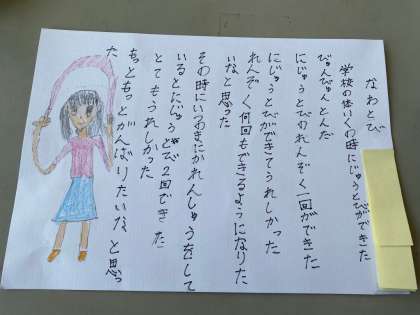 なわとび
学校の体いくの時にじゅうとびができた
びゅんびゅんとんだ
にじゅうとびのれんぞく一回ができた
にじゅうとびができてうれしかった
れんぞく何回もできるようになりた
いなと思った
その時にいつのまにかれんしゅうをして
いるとにじゅうとび2回できた
とてもうれしかった
もっともっとがんばりたいな と思っ
た